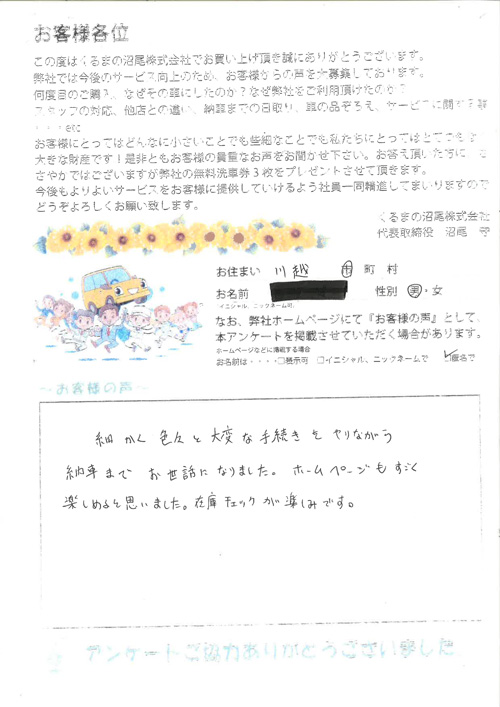 お客様各位
この度はくるまの沼尾株式会社でお買い上げ頂き誠にありがとうございます。
弊社では今後のサービス向上のため、お客様からの声を大募集しております。
何度目のご購入、なぜその車にしたのか？なぜ弊社をご利用頂けたのか？
スタッフの対応、他店との違い、納車までの日取り、車の品ぞろえ、サービスに関する
・・・etc
お客様にとってはどんなに小さいことでも些細なことでも私たちにとってはとても
大きな財産です！是非ともお客様の貴重なお声をお聞かせ下さい。お答え頂いた方に
さやかではございますが弊社の無料洗車券３枚をプレゼントさせて頂きます。
今後もよりよいサービスをお客様に提供していけるよう社員一同精進してまいりますので
どうぞよろしくお願い致します。
くるまの沼尾株式会社
代表取締役 沼尾
お住まい 川越 市 町 村
お名前 性別 男・女
イニシャル、ニックネーム可
なお、弊社ホームページにて『お客様の声』として、
本アンケートを掲載させていただく場合があります。
ホームページなどに掲載する場合
お名前は・・・□掲示可 □イニシャル、ニックネームで □匿名で
～お客様の声～
細かく色々と大変な手続きをやりながら
納車までお世話になりました。ホームページもすごく
楽しめると思いました。在庫チェックが楽しみです。
アンケートご協力ありがとうございました